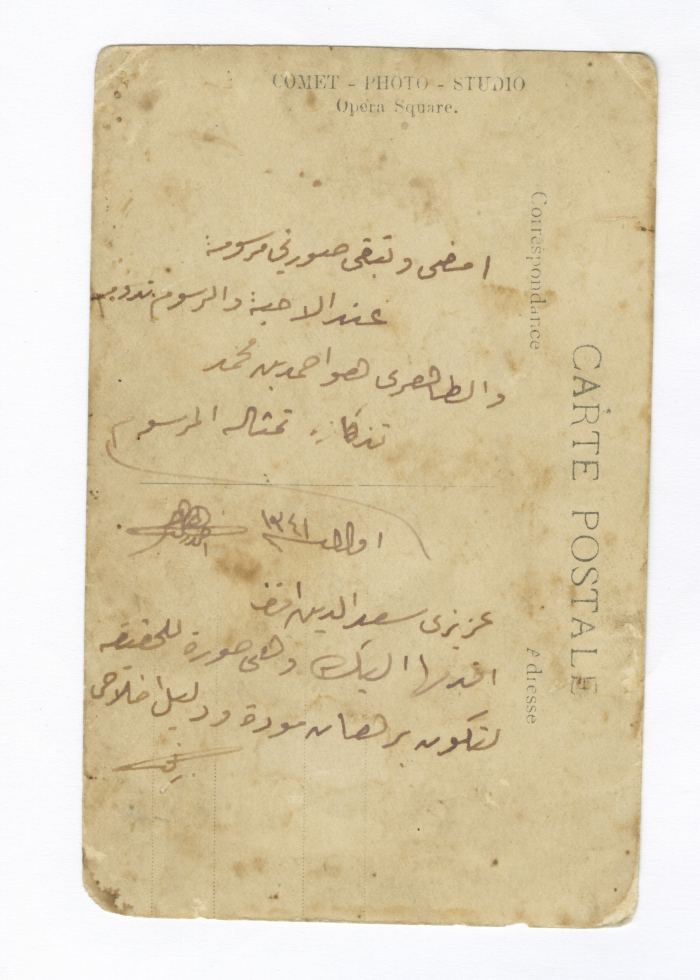 COMET - PHOTO - STUDIO
Opéra Square.
CARTE POSTALE
Correspondance
Adresse
امضى وتبقى صورتى مرسومة
عند الاحبة والرسوم تدوم
والطاهرى هو احمد بن محمد
تذكار تمثاله المرسوم
١٣٤١
عزيزى سعد الدين افندى
اقدمها اليك وهى صورة للحقيقه
لتكون برهان مودة ودليل اخلاصى